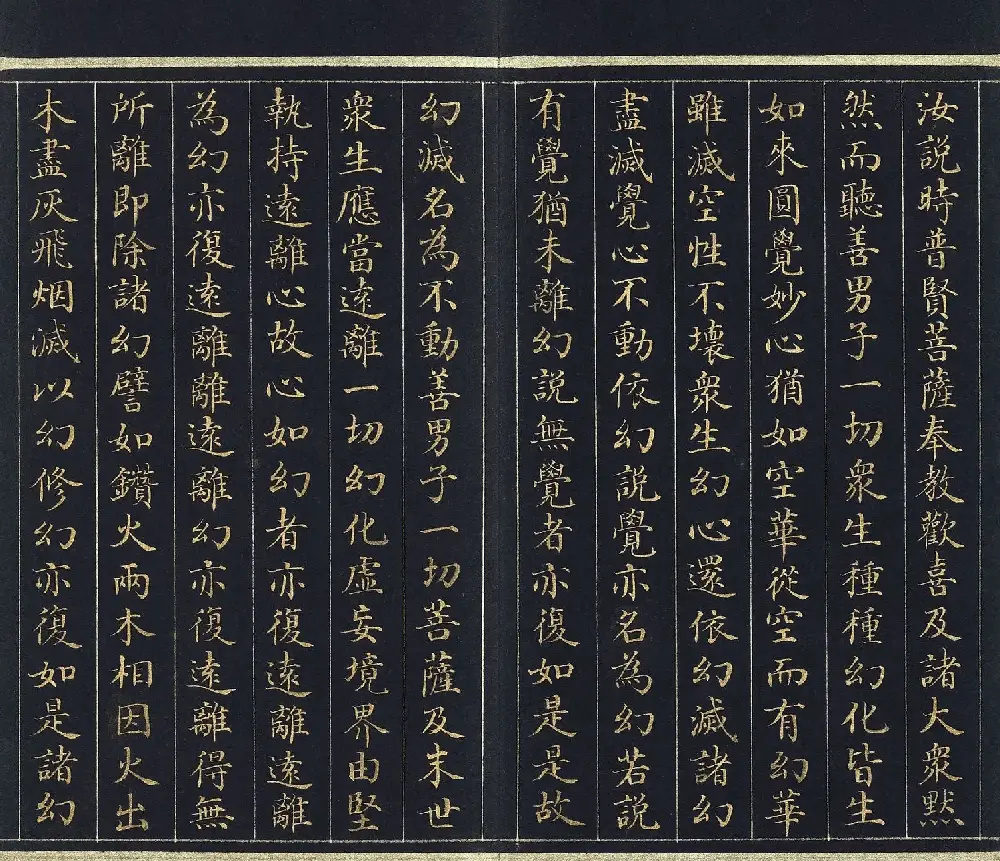 汝說時普賢菩薩奉教歡喜及諸大衆默
然而聽善男子一切衆生種種幻化皆生
如來圓覺妙心猶如空華從空而有幻華
雖滅空性不壞衆生幻心還依幻滅諸幻
盡滅覺心不動依幻說覺亦名為幻若說
有覺猶未離幻說無覺者亦復如是是故
幻滅名為不動善男子一切菩薩及末世
衆生應當遠離一切幻化虛妄境界由堅
執持遠離心故心如幻者亦復遠離遠離
為幻亦復遠離離遠離幻亦復遠離得無
所離即除諸幻譬如鑽火兩木相因火出
木盡灰飛烟滅以幻修幻亦復如是諸幻